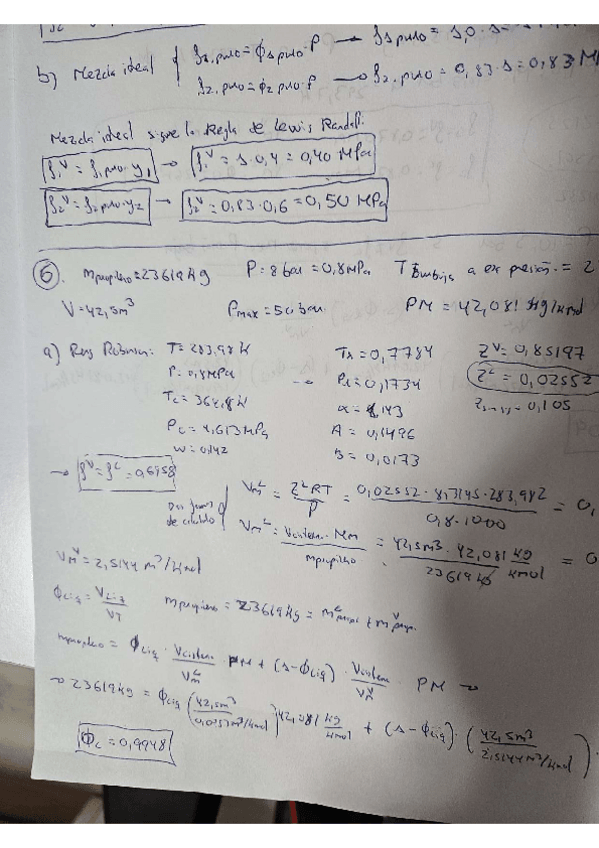 b) Mezcla ideal { f1,puro = ϕ1puro·P → f1puro = 1,0·1=
f2,puro = ϕ2puro·P → f2,puro = 0,83·1=0,83 M
Mezcla ideal sigue la Regla de Lewis Randall:
f1^V = f1puro·y1 → f1^V = 1·0,4 = 0,40 MPa
f2^V = f2puro·y2 → f2^V = 0,83·0,6 = 0,50 MPa
6. mpropileno = 23619 kg P = 8 bar = 0,8 MPa T a ex presión = 2
V = 42,5 m³ Pmax = 50 bar PM = 42,081 kg/kmol
a) Peng Robinson: T = 283,98 K Tr = 0,7784 Z^V = 0,85197
P = 0,8 MPa → Pr = 0,1734 Z^L = 0,02552
Tc = 364,8 K α = 1,143 = 0,105
Pc = 4,613 MPa A = 0,1496
w = 0,142 B = 0,0173
→ f^V = f^L = 0,6958
Dos formas de calcularlo { Vm^L = Z^L RT / P = 0,02552 · 8,3145 · 283,982 / 0,8·1000 = 0,
Vm^L = Vcistern · Mm / mpropileno = 42,5m³ · 42,081 kg/kmol / 23619 kg = 0
Vm^V = 2,5144 m³/kmol
ϕLiq = VLiq / VT mpropileno = 23619 kg = m^L prop + m^V prop.
mpropileno = ϕLiq · Vcistern / Vm^L · PM + (1-ϕLiq) · Vcistern / Vm^V · PM →
→ 23619 kg = ϕLiq (42,5m³ / 0,0757 m³/kmol) 42,081 kg/kmol + (1-ϕLiq) · (42,5m³ / 2,5144 m³/kmol) ·
ϕL = 0,9948